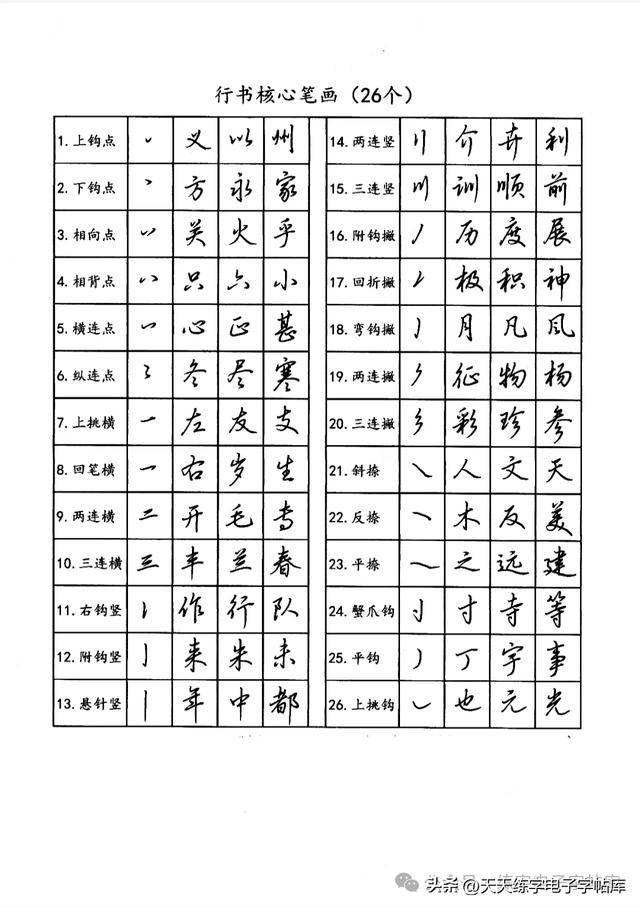 行书核心笔画（26个）
1.上钩点 丶 义 以 州
2.下钩点 丶 方 永 家
3.相向点 丷 关 火 乎
4.相背点 八 只 六 小
5.横连点 心 正 甚
6.纵连点 冬 尽 寒
7.上挑横 一 左 友 支
8.回笔横 一 右 岁 生
9.两连横 二 开 毛 专
10.三连横 三 丰 兰 春
11.右钩竖 作 行 队
12.附钩竖 亅 来 朱 未
13.悬针竖 丨 年 中 都
14.两连竖 介 卉 利
15.三连竖 训 顺 前
16.附钩撇 丿 历 度 展
17.回折撇 极 积 神
18.弯钩撇 月 凡 风
19.两连撇 征 物 杨
20.三连撇 彡 彩 珍 参
21.斜捺 ㇏ 人 文 天
22.反捺 木 反 美
23.平捺 之 远 建
24.蟹爪钩 寸 寺 等
25.平钩 丁 字 事
26.上挑钩 也 元 光
头条 @天天练字电子字帖库